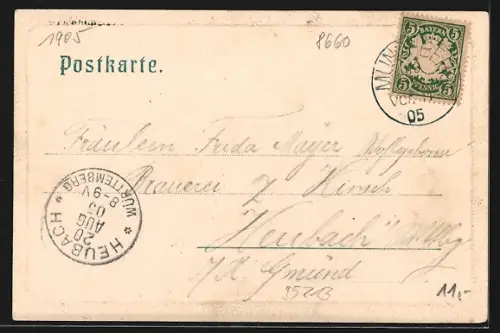 1905
8660
Postkarte.
BAYERN
5 5
5 PFENNIG 5
MÜN
VOR
05
Fräulein Frida Mayer Wohlgeboren
Brauerei z Hirsch
Heubach
O/A Gmünd
HEUBACH
20
AUG
05
8-9V
WÜRTTEMBERG
11,-